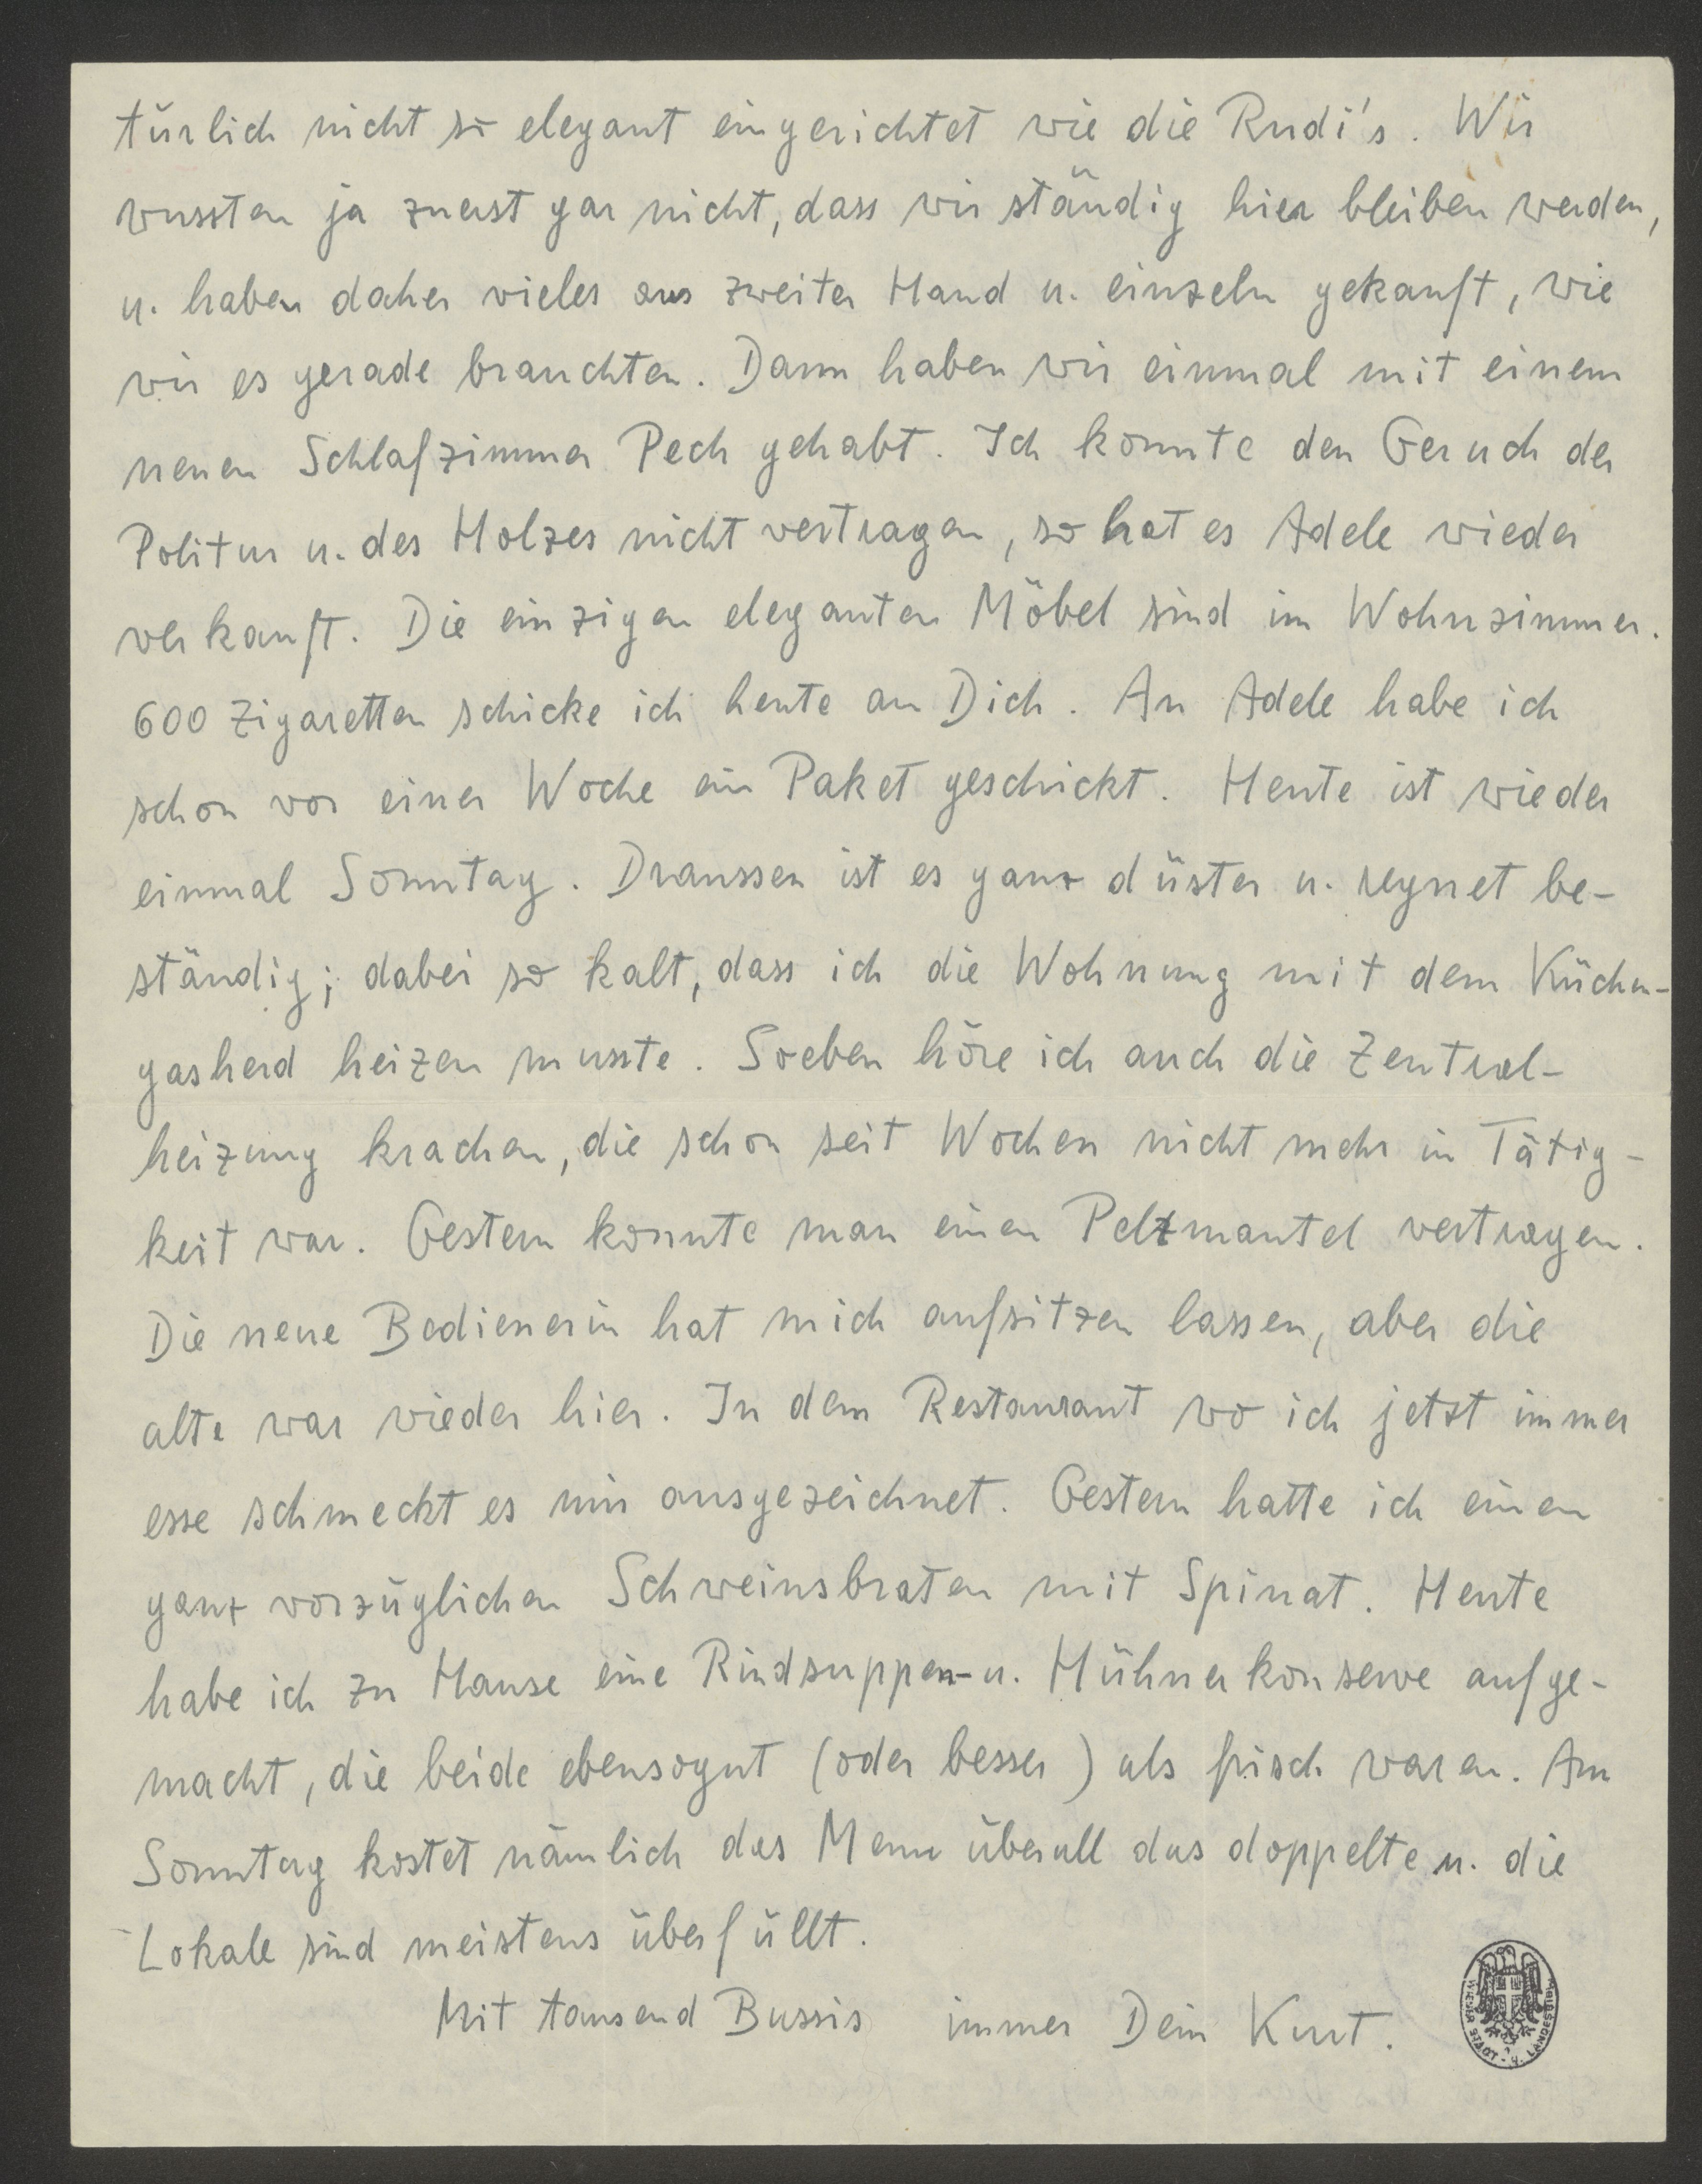 türlich nicht so elegant eingerichtet wie die Rudi's. Wir
wussten ja zuerst gar nicht, dass wir ständig hier bleiben werden,
u. haben daher vieles aus zweiter Hand u. einzeln gekauft, wie
wir es gerade brauchten. Dann haben wir einmal mit einem
neuen Schlafzimmer Pech gehabt. Ich konnte den Geruch der
Politur u. des Holzes nicht vertragen, so hat es Adele wieder
verkauft. Die einzigen eleganten Möbel sind im Wohnzimmer.
600 Zigaretten schicke ich heute an Dich. An Adele habe ich
schon vor einer Woche ein Paket geschickt. Heute ist wieder
einmal Sonntag. Draussen ist es ganz düster u. regnet be-
ständig; dabei so kalt, dass ich die Wohnung mit dem Küchen-
gasherd heizen musste. Soeben höre ich auch die Zentral-
heizung krachen, die schon seit Wochen nicht mehr in Tätig-
keit war. Gestern konnte man einen Pelzmantel vertragen.
Die neue Bedienerin hat mich aufsitzen lassen, aber die
alte war wieder hier. In dem Restaurant wo ich jetzt immer
esse schmeckt es mir ausgezeichnet. Gestern hatte ich einen
ganz vorzüglichen Schweinsbraten mit Spinat. Heute
habe ich zu Hause eine Rindsuppen- u. Hühnerkonserve aufge-
macht, die beide ebensogut (oder besser) als frisch waren. Am
Sonntag kostet nämlich das Menu überall das doppelte u. die
Lokale sind meistens überfüllt.
Mit tausend Bussis immer Dein Kurt.
WIENER STADT- U. LANDESBIBL.